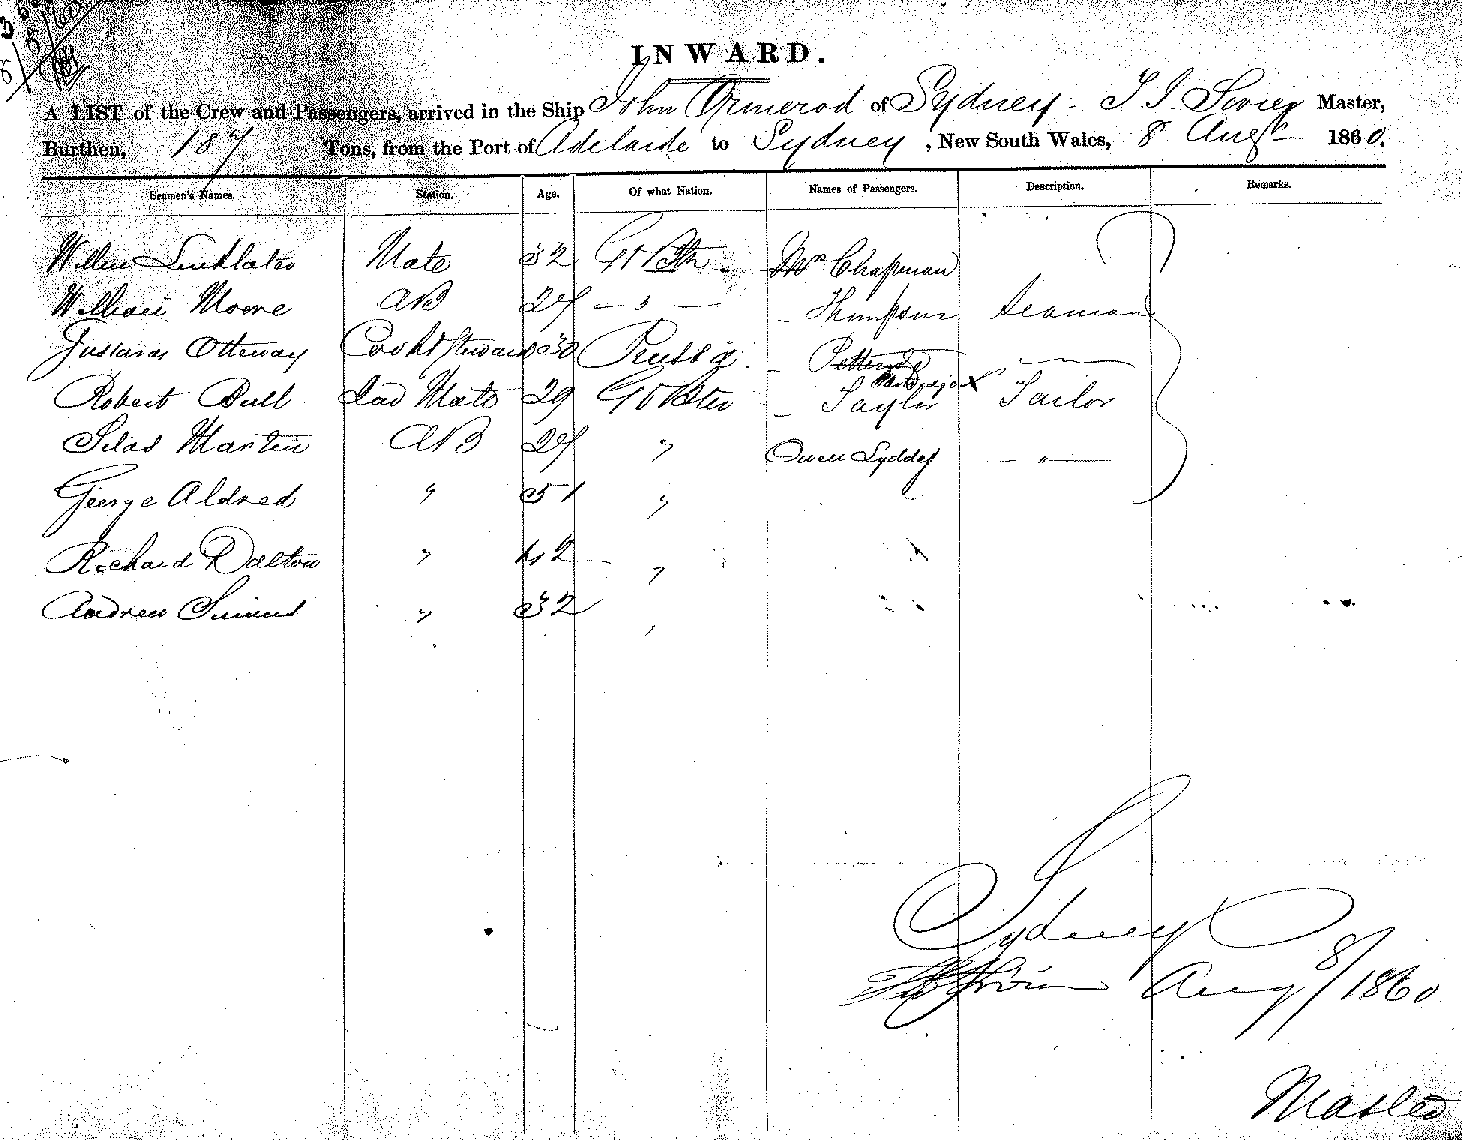 INWARD.
A LIST of the Crew and Passengers, arrived in the Ship John Ormerod of Sydney T I Master,
Burthen, 187 Tons, from the Port of Adelaide to Sydney, New South Wales, 8 Augt 1860.
Seamen's Names. Station. Age. Of what Nation. Names of Passengers. Description. Remarks.
Mate 32 Gt Brtn Mrs Chapman
William Moore AB 27 — " — - Thompson Seaman
Otteway Cook & Steward 30 Russia -
Robert Bull 2nd Mate 29 Gt Brtn - Taylor Tailor
Silas Martin AB 27 " Owen — " —
George Aldred " 51 "
Richard Dalton " 42 "
Andrew " 32 "
Sydney
Aug 8/1860
Master